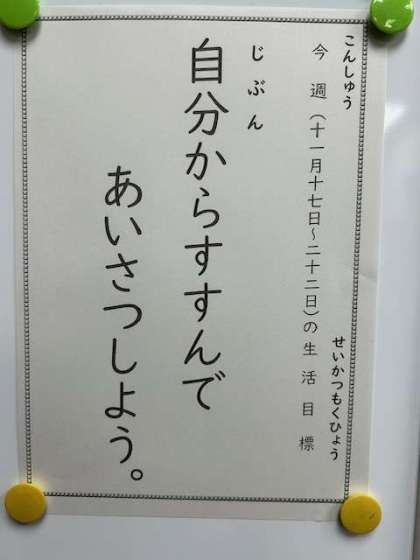 こんしゅう
せいかつもくひょう
今週(十一月十七日〜二十二日)の生活目標
じぶん
自分からすすんで
あいさつしよう。